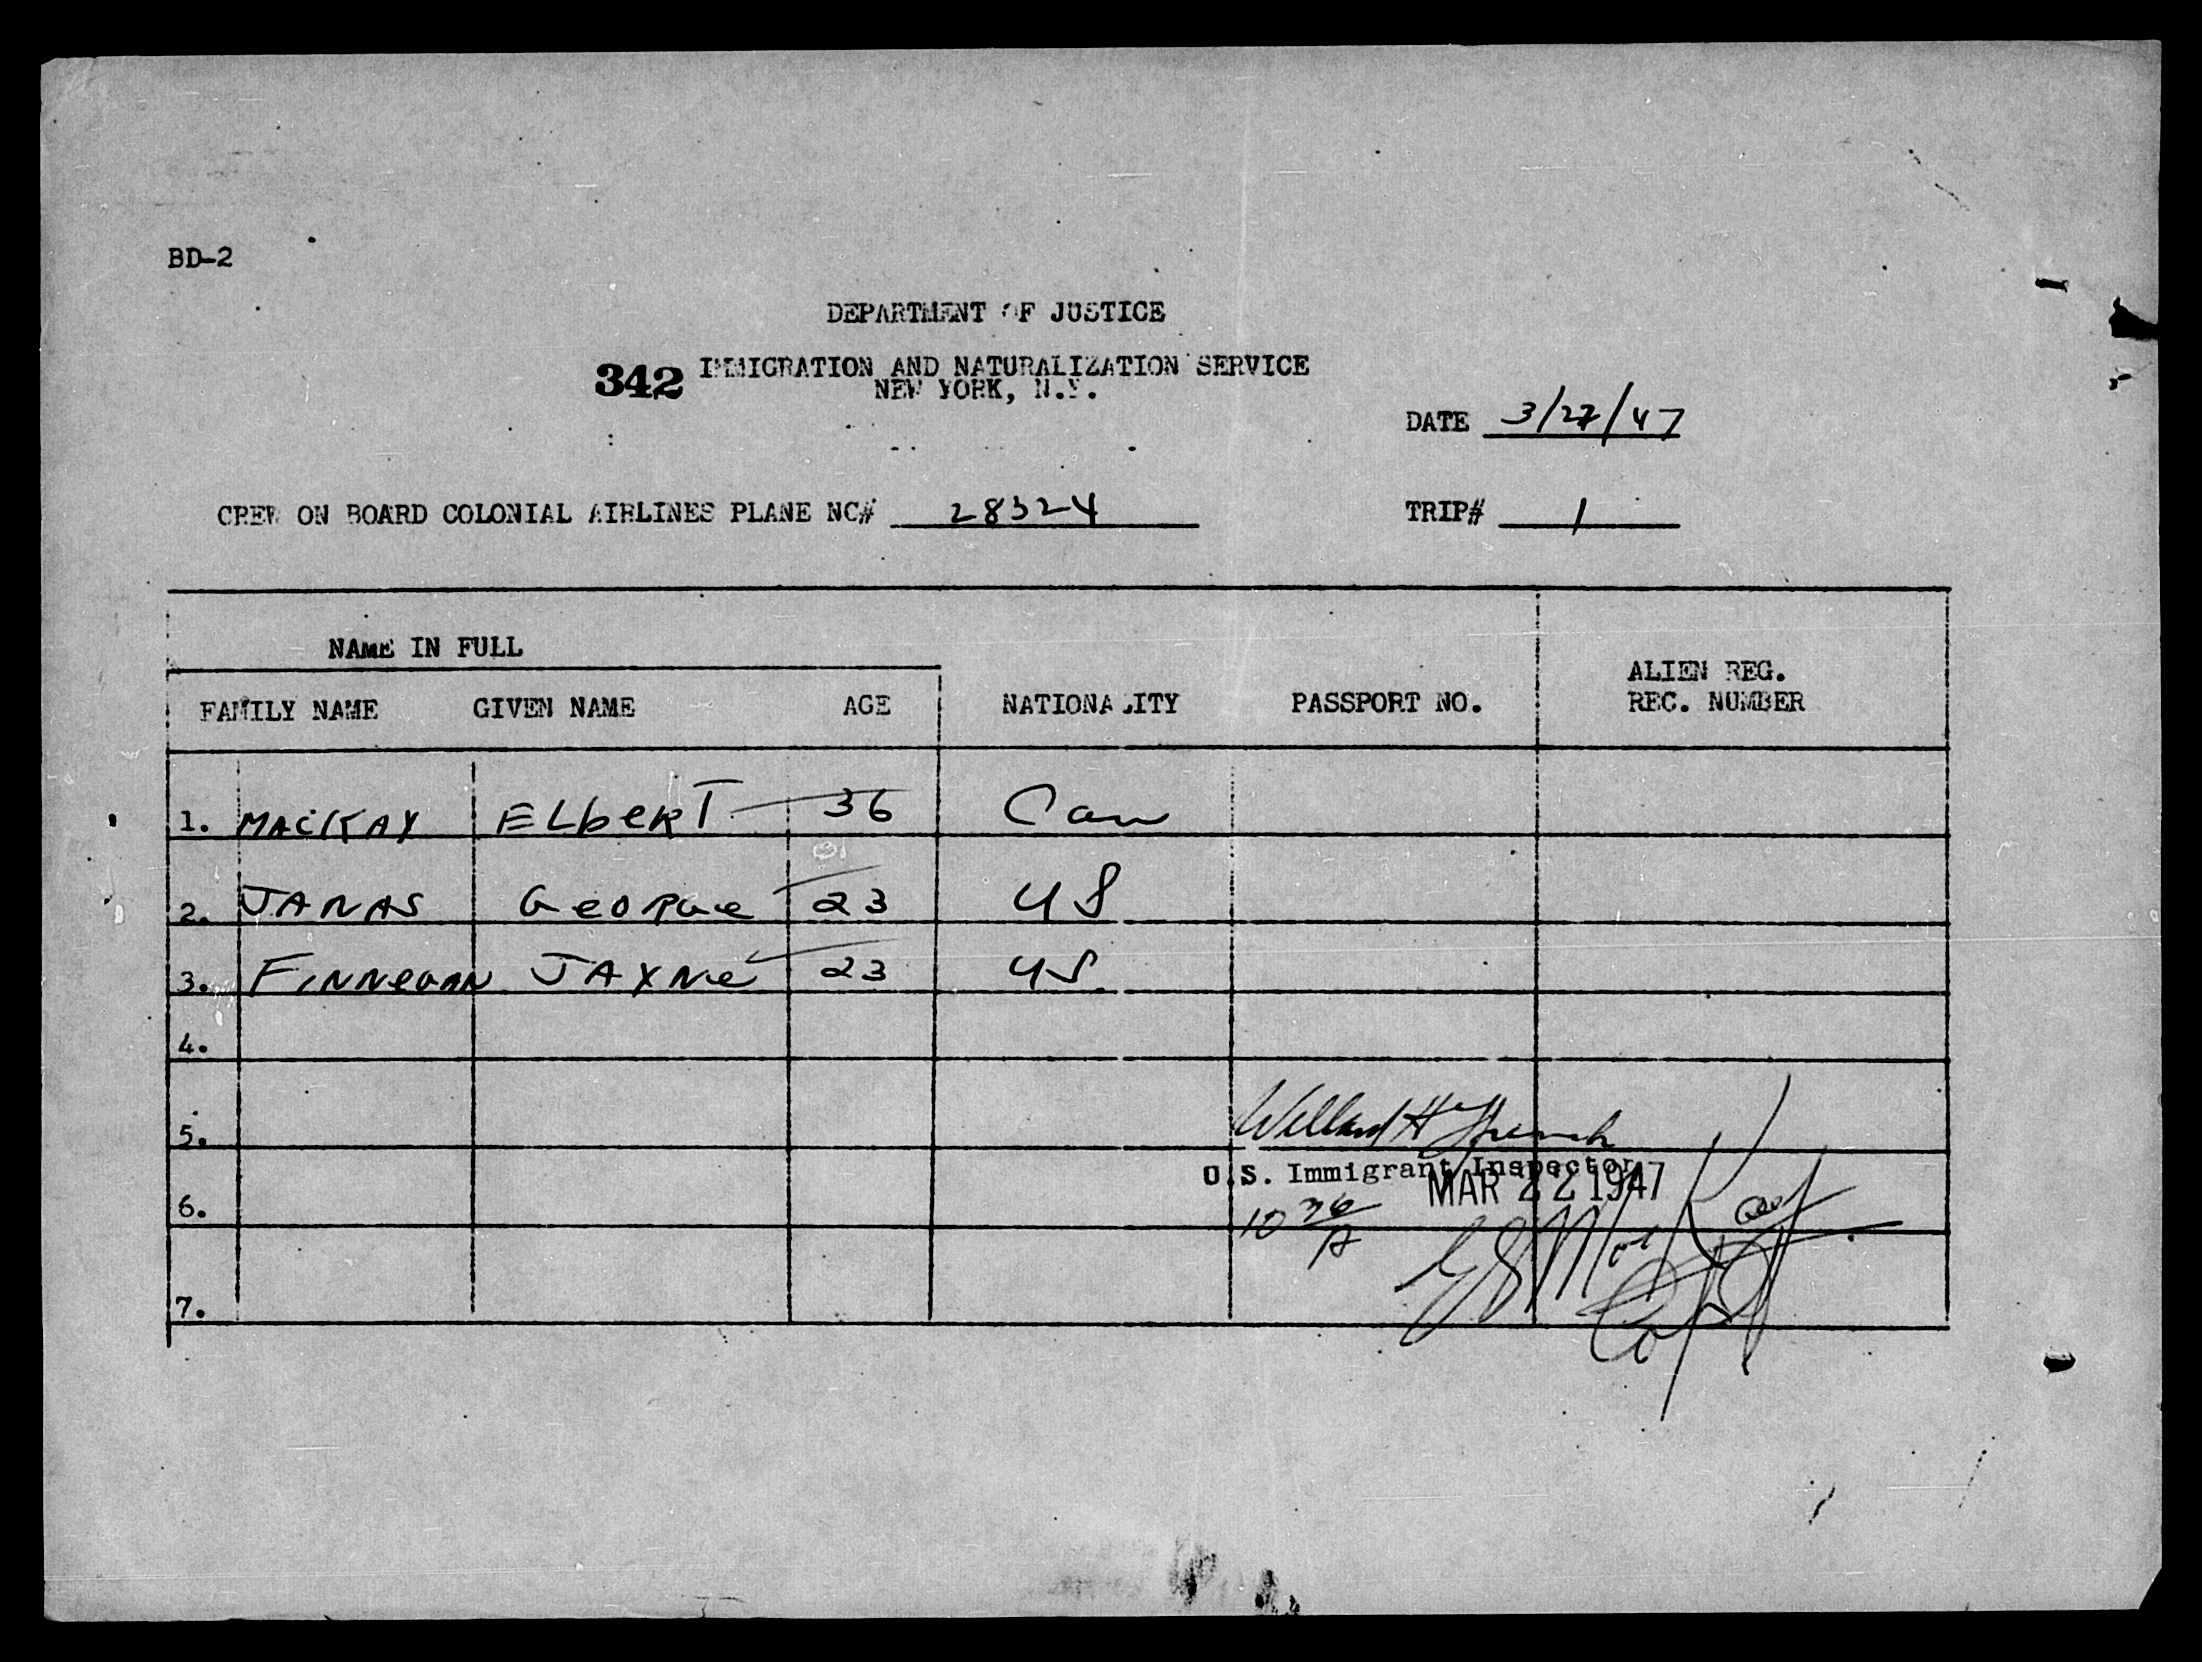 BD-2
DEPARTMENT OF JUSTICE
342 IMMIGRATION AND NATURALIZATION SERVICE
NEW YORK, N.Y.
DATE 3/27/47
CREW ON BOARD COLONIAL AIRLINES PLANE NC# 28324 TRIP# 1
NAME IN FULL
ALIEN REG.
FAMILY NAME GIVEN NAME AGE NATIONALITY PASSPORT NO. REC. NUMBER
1. MACKAY ELbeRT 36 Can
2. JANAS GeORGe 23 US
3. FINNeGAN JAYNe 23 US.
4.
5. Willard H
U.S. Immigrant Inspector
MAR 22 1947
6. 10 36/A
E S MacKay
7. Capt